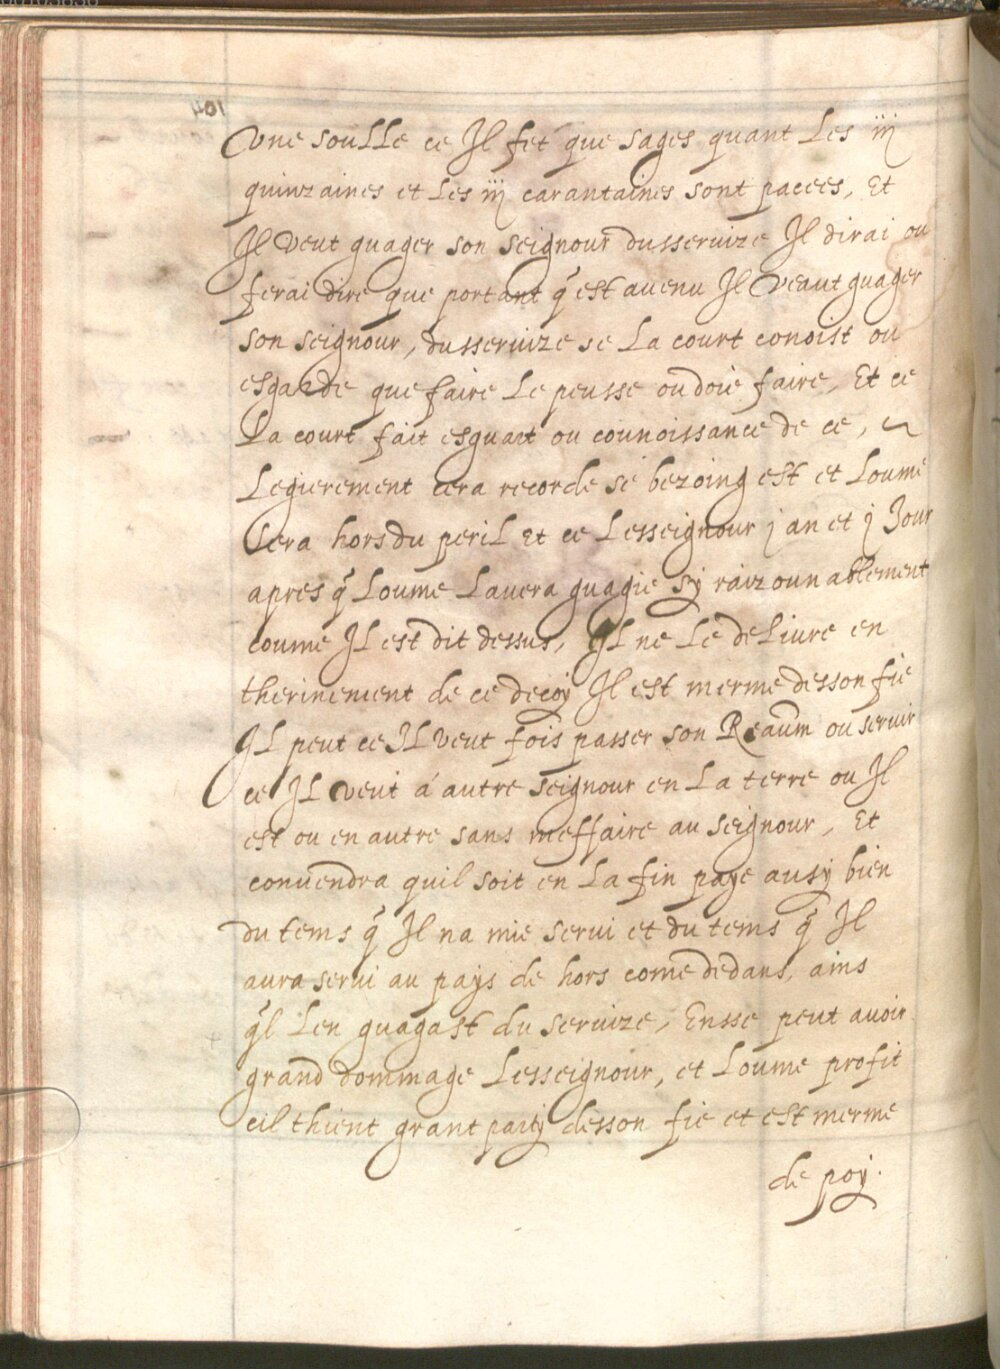 Une soulle ce Il fet que sages quant Les iij
quinzaines et Les iij carantaines sont pacees, Et
Il veut guager son seignour dusseruize Il dirai ou
ferai dire que portant q̃ est auenu Il veaut guager
son seignour, dusseruize se La court conoist ou
esgarde que faire Le peusse ou doie faire, Et ce
La court fait esguart ou counoissance de ce,
Legierement cera recorde se bezoing est et Loume
cera hors du peril Et ce Lesseignour j an et j Jour
apres q̃ Loume Lauera guagie sy raizounablement
coume Il est dit dessus, Il ne Le deliure en
therinement de ce decoy Il est merme desson fie
Il peut ce Il veut fois passer son Reaum ou seruir
ce Il veut á autre seignour en La terre ou Il
est ou en autre sans meffaire au seignour, Et
conuendra quil soit en La fin paye ausy bien
du tems q̃ Il na mie serui et du tems q̃ Il
aura serui au pays de hors come dedans, ains
q̃l Len guagast du seruize, Ensse peut auoir
grand dommage Lesseignour, et Loume profit
cil thient grant party desson fie et est merme
de poy.